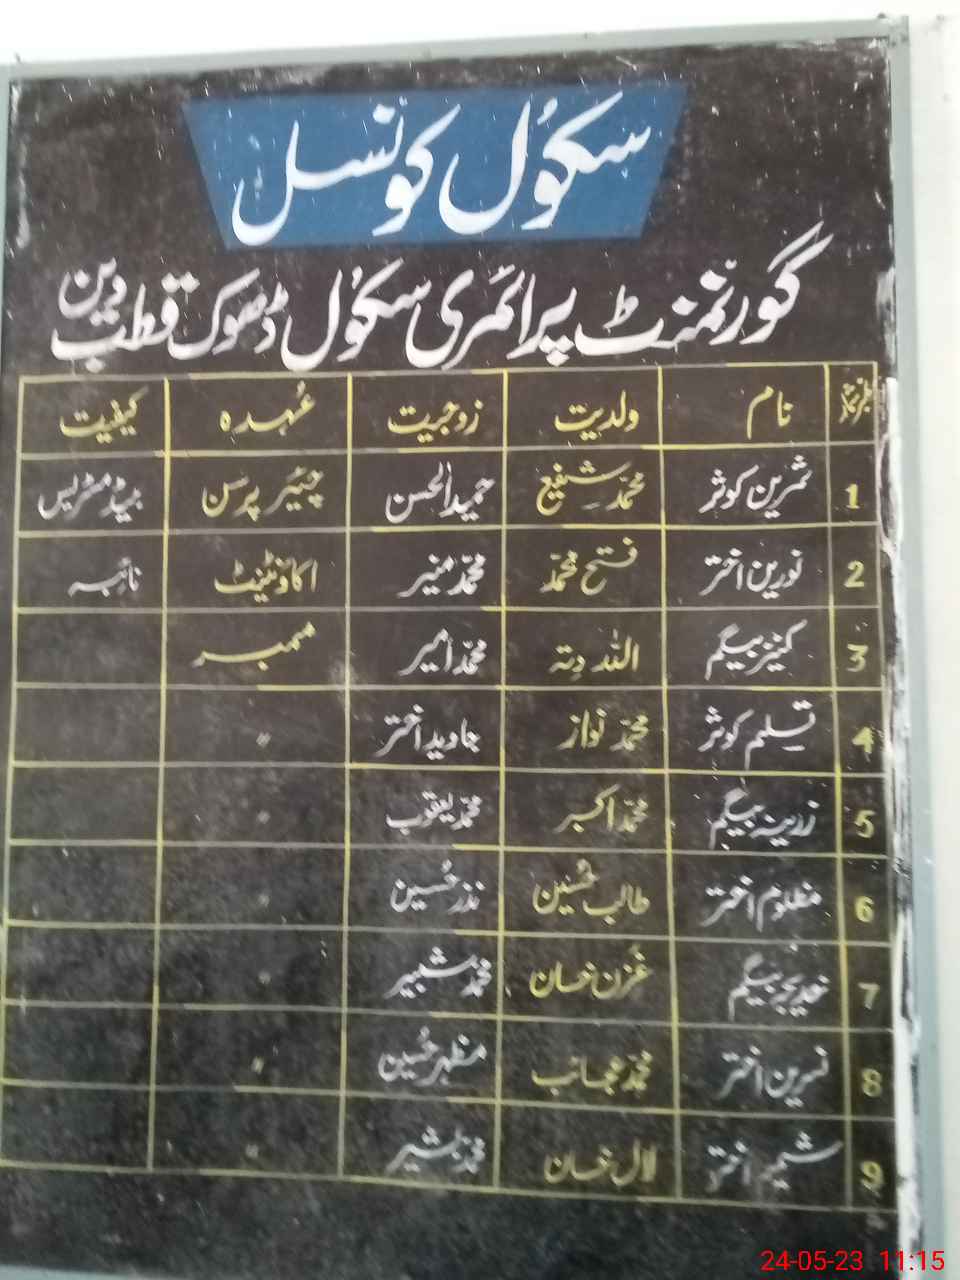 سکول کونسل
گورنمنٹ پرائمری سکول ڈھوک قطب دین
نمبر شمار نام ولدیت زوجیت عُہدہ کیفیت
1 ثمرین کوثر محمد شفیع حمید الحسن چیئر پرسن ہیڈ مسٹریس
2 نورین اختر فتح محمد محمد منیر اکاؤنٹینٹ نائبہ
3 کنیز بیگم اللہ دتہ محمد امیر ممبر
4 تسلیم کوثر محمد نواز جاوید اختر 〃
5 زرینہ بیگم محمد اکبر محمد یعقوب 〃
6 مظلوم اختر طالب حُسین نذر حُسین 〃
7 خدیجہ بیگم خان محمد شبیر 〃
8 نسرین اختر محمد عجائب مظہر حُسین 〃
9 شمیم اختر لال خان محمد بشیر 〃
24-05-23 11:15